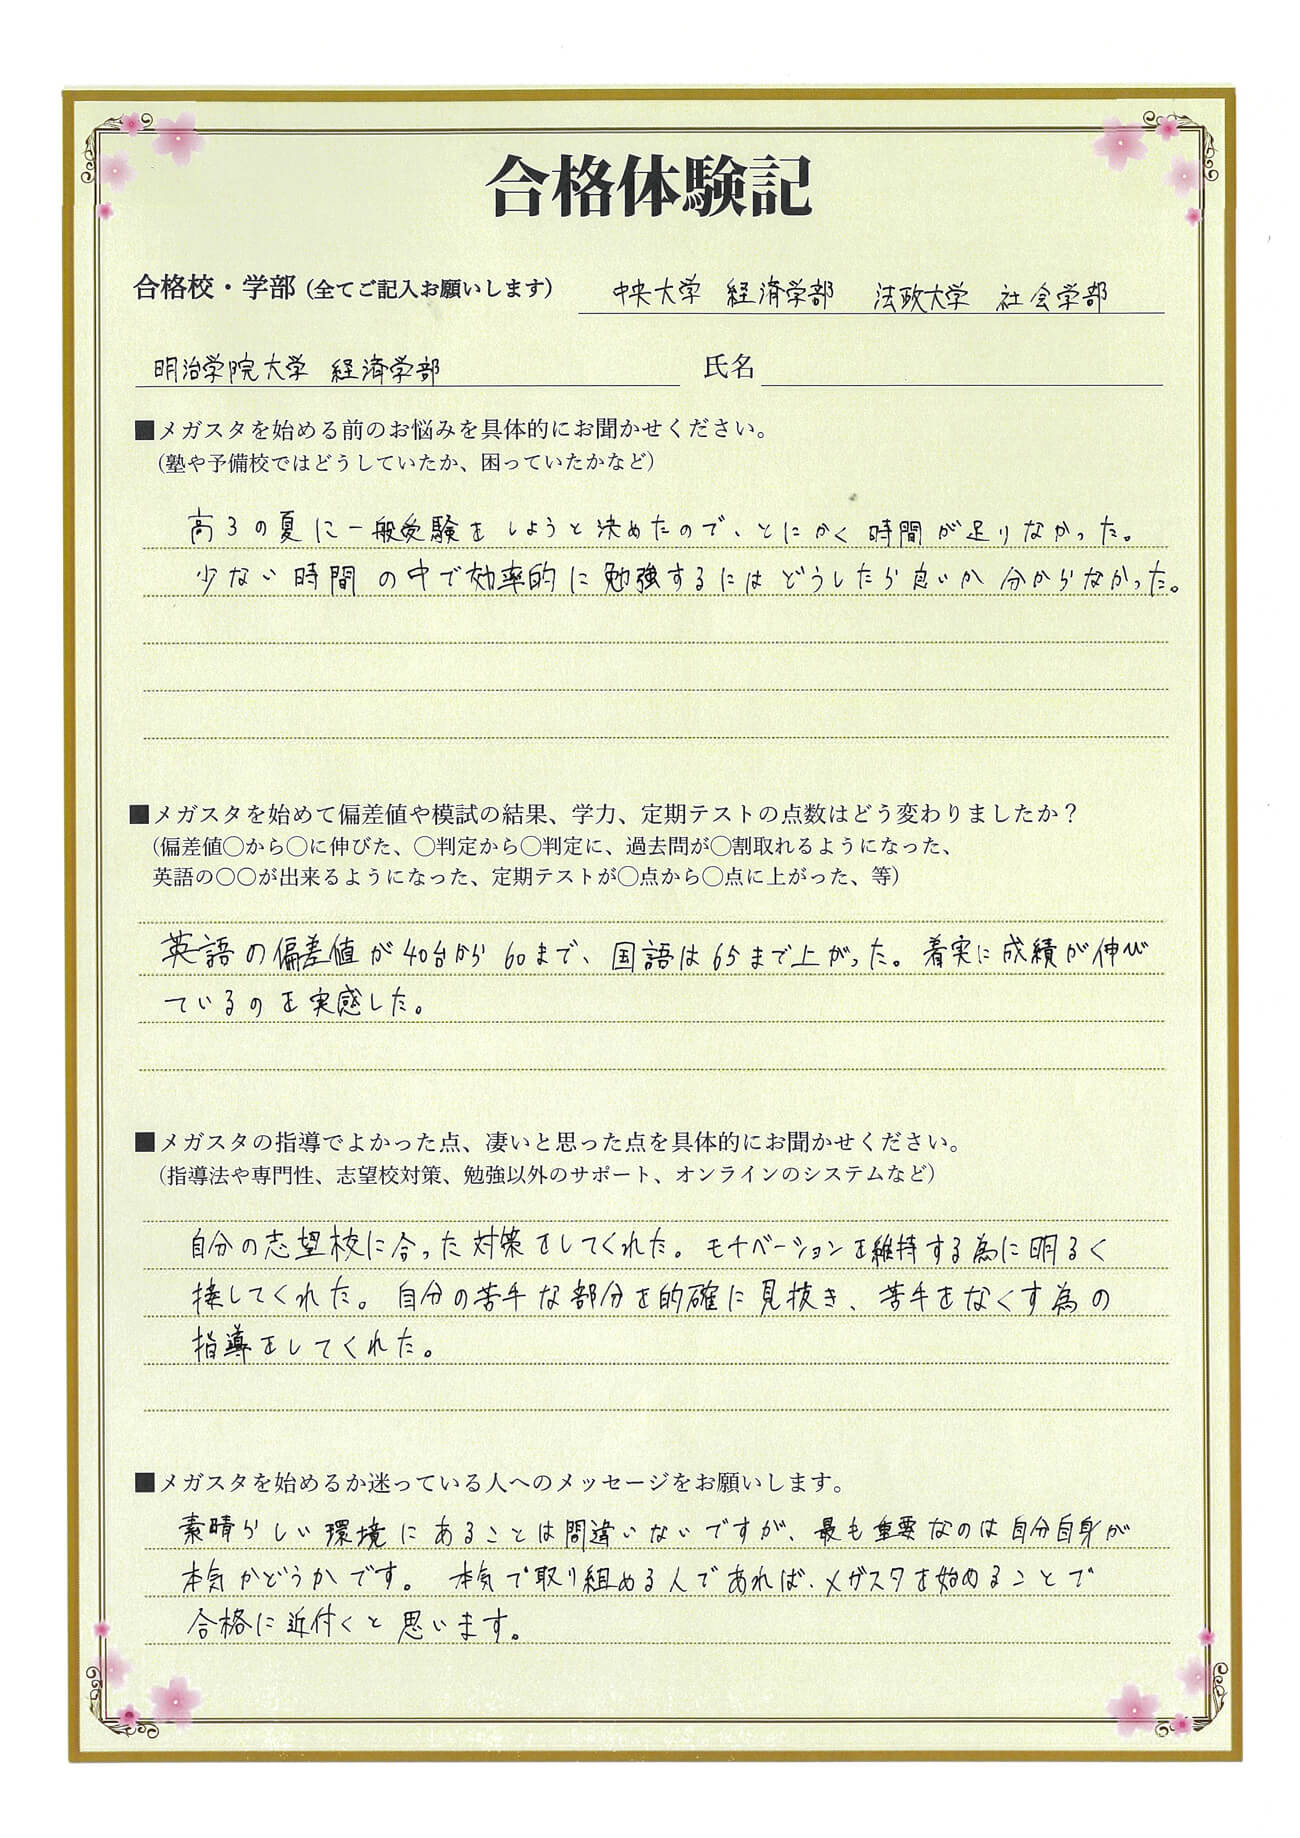 合格体験記
合格校・学部（全てご記入お願いします） 中央大学 経済学部 法政大学 社会学部
明治学院大学 経済学部 氏名
■メガスタを始める前のお悩みを具体的にお聞かせください。
（塾や予備校ではどうしていたか、困っていたかなど）
高3の夏に一般受験をしようと決めたので、とにかく時間が足りなかった。
少ない時間の中で効率的に勉強するにはどうしたら良いか分からなかった。
■メガスタを始めて偏差値や模試の結果、学力、定期テストの点数はどう変わりましたか？
（偏差値〇から〇に伸びた、〇判定から〇判定に、過去問が〇割取れるようになった、
英語の〇〇が出来るようになった、定期テストが〇点から〇点に上がった、等）
英語の偏差値が40台から60まで、国語は65まで上がった。着実に成績が伸び
ているのを実感した。
■メガスタの指導でよかった点、凄いと思った点を具体的にお聞かせください。
（指導法や専門性、志望校対策、勉強以外のサポート、オンラインのシステムなど）
自分の志望校に合った対策をしてくれた。モチベーションを維持する為に明るく
接してくれた。自分の苦手な部分を的確に見抜き、苦手をなくす為の
指導をしてくれた。
■メガスタを始めるか迷っている人へのメッセージをお願いします。
素晴らしい環境にあることは間違いないですが、最も重要なのは自分自身が
本気かどうかです。本気で取り組める人であれば、メガスタを始めることで
合格に近付くと思います。